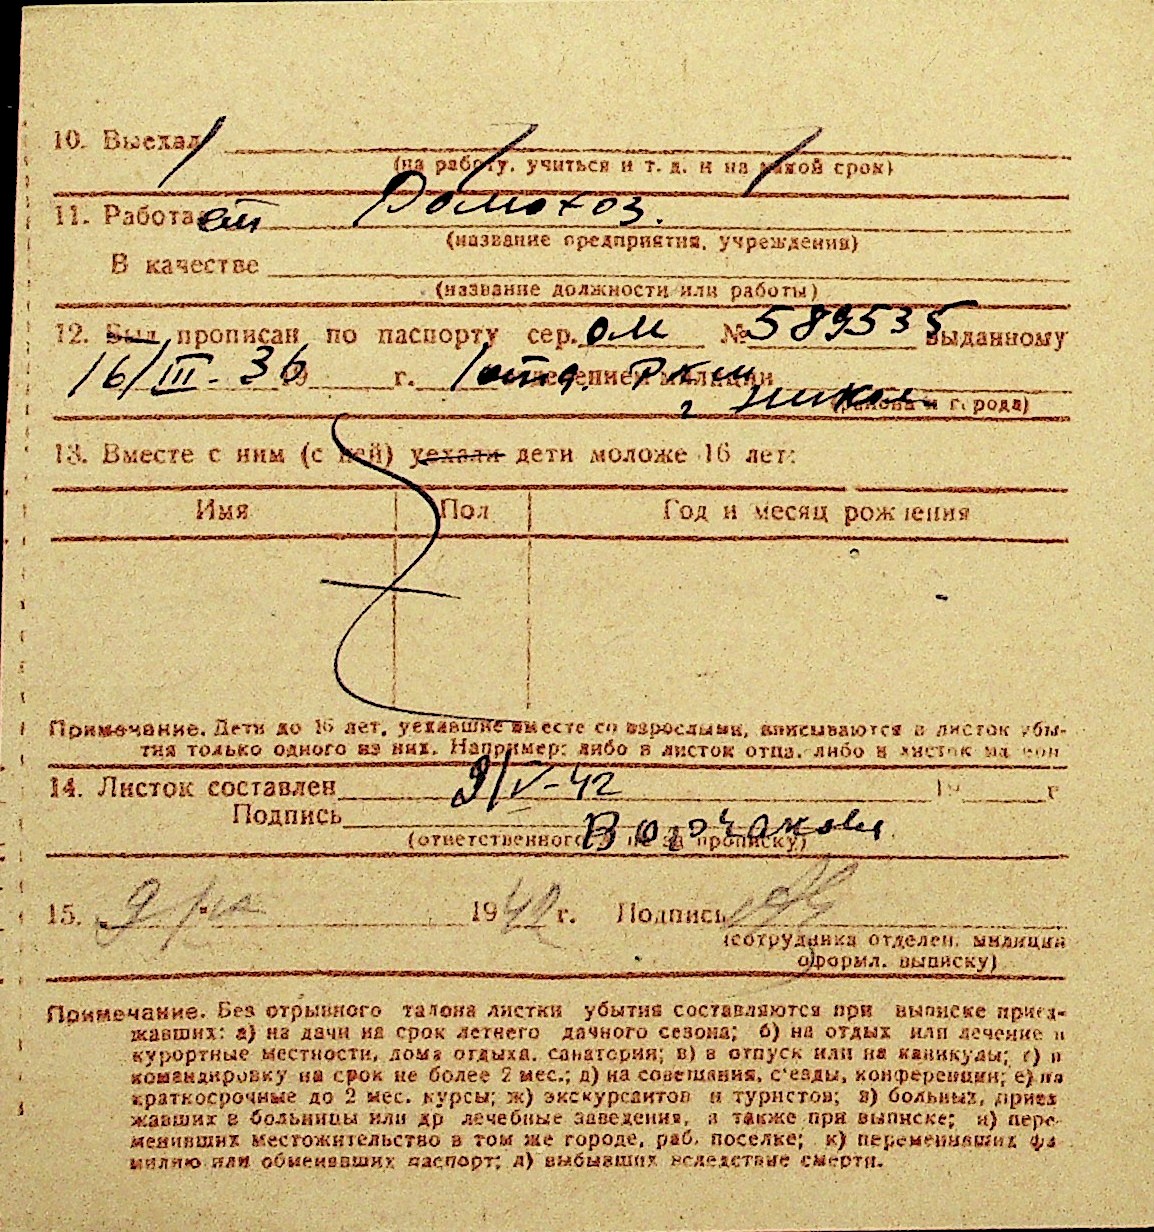 10. Выехал
(на работу, учиться и т. д. и на какой срок)
11. Работает Домохоз.
(название предприятия, учреждения)
В качестве
(название должности или работы)
12. Был прописан по паспорту сер. ОМ № 589535 выданному
16/III-36 г. 1 отд. отделением милиции РКМ
г.
(района и города)
13. Вместе с ним (с ней) уехали дети моложе 16 лет:
Имя Пол Год и месяц рождения
Примечание. Дети до 16 лет, уехавшие вместе со взрослыми, вписываются в листок убы-
тия только одного из них. Например: либо в листок отца, либо в листок матери
14. Листок составлен 9/V-42 19 г
Подпись
(ответственного за прописку)
15. 9 1942 г. Подпись
(сотрудника отделен. милиции
оформл. выписку)
Примечание. Без отрывного талона листки убытия составляются при выписке приез-
жавших: а) на дачи на срок летнего дачного сезона; б) на отдых или лечение в
курортные местности, дома отдыха, санатория; в) в отпуск или на каникулы; г) в
командировку на срок не более 2 мес.; д) на совещания, с'езды, конференции; е) на
краткосрочные до 2 мес. курсы; ж) экскурсантов и туристов; з) больных, приез
жавших в больницы или др лечебные заведения, а также при выписке; и) пере-
менивших местожительство в том же городе, раб. поселке; к) переменивших фа
милию или обменявших паспорт; л) выбывших вследствие смерти.